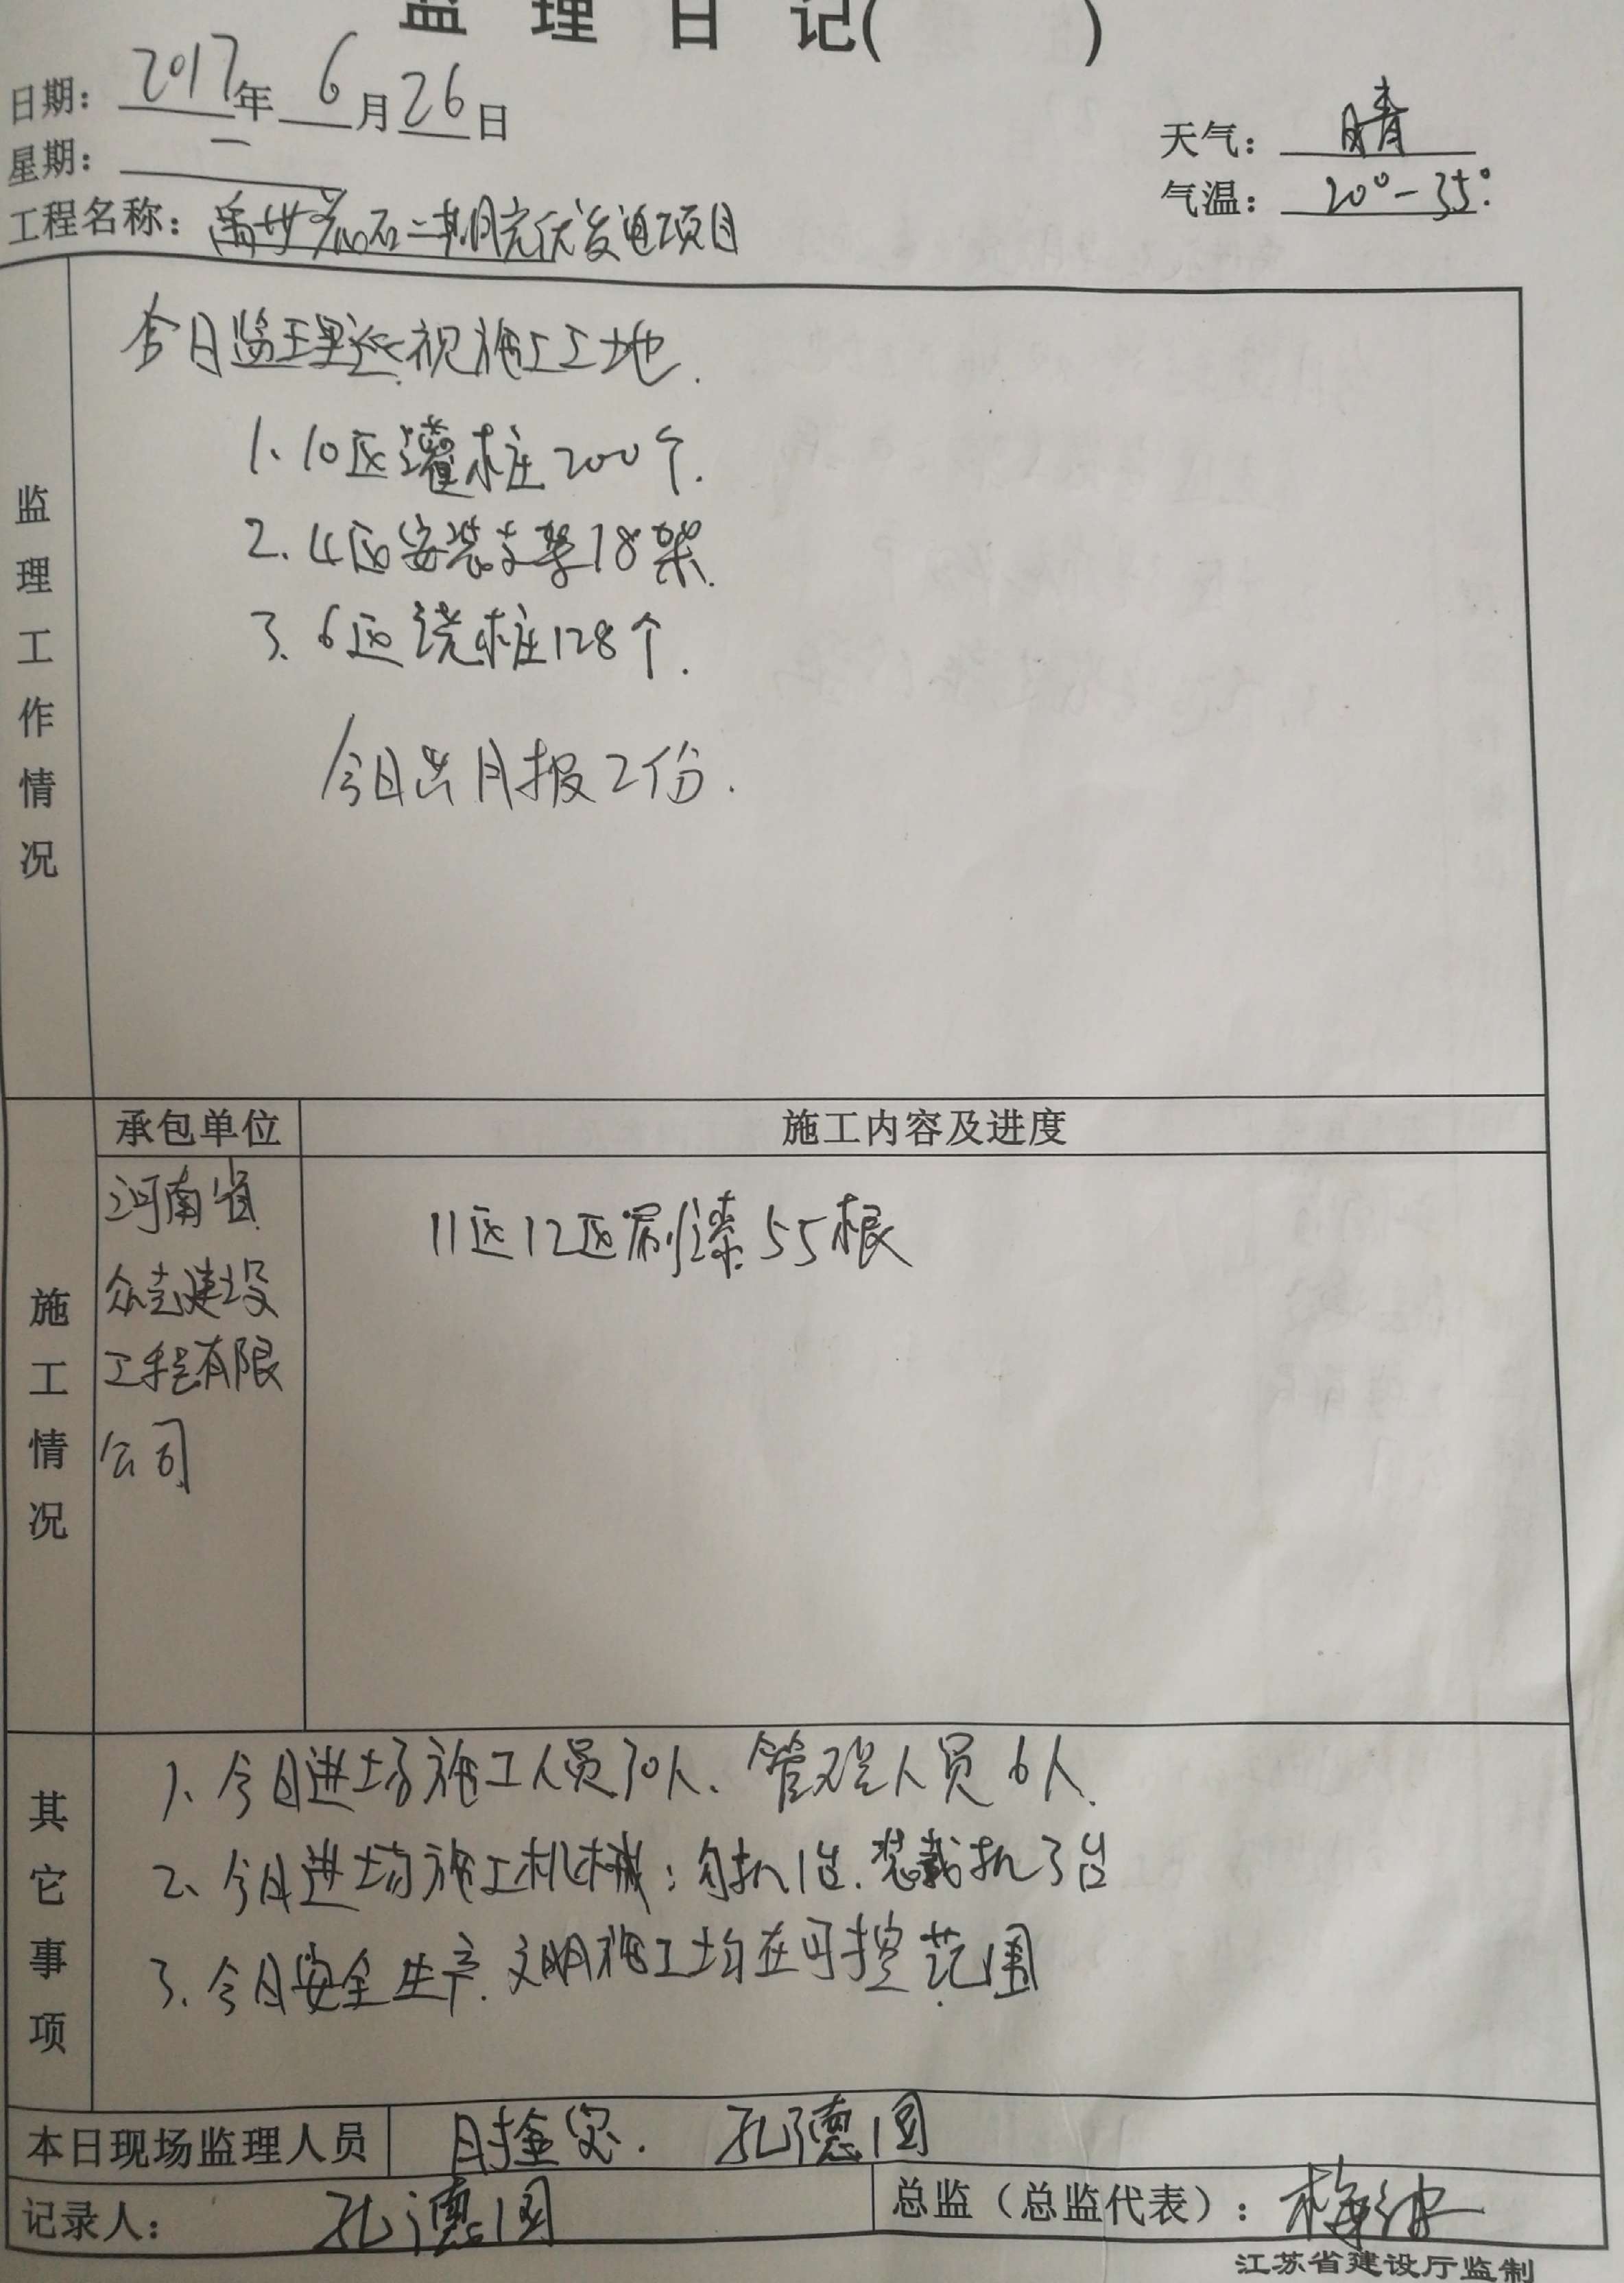 监 理 日 记( )
日期: 2017年 6月26日
星期: 一
天气: 晴
气温: 20°-35°
工程名称: 禹州 石二期光伏发电项目
监理工作情况
今日监理巡视施工工地.
1、10区灌桩200个.
2、4区安装支架18架.
3、6区浇桩128个.
今日出月报2份.
施工情况
承包单位 施工内容及进度
河南省
众志建设
工程有限
公司
11区12区刷漆55根
其它事项
1、今日进场施工人员70人、管理人员6人.
2、今日进场施工机械:勾机1台.装载机3台
3、今日安全生产.文明施工均在可控范围
本日现场监理人员 孔德国
记录人: 孔德国
总监(总监代表): 梅
江苏省建设厅监制